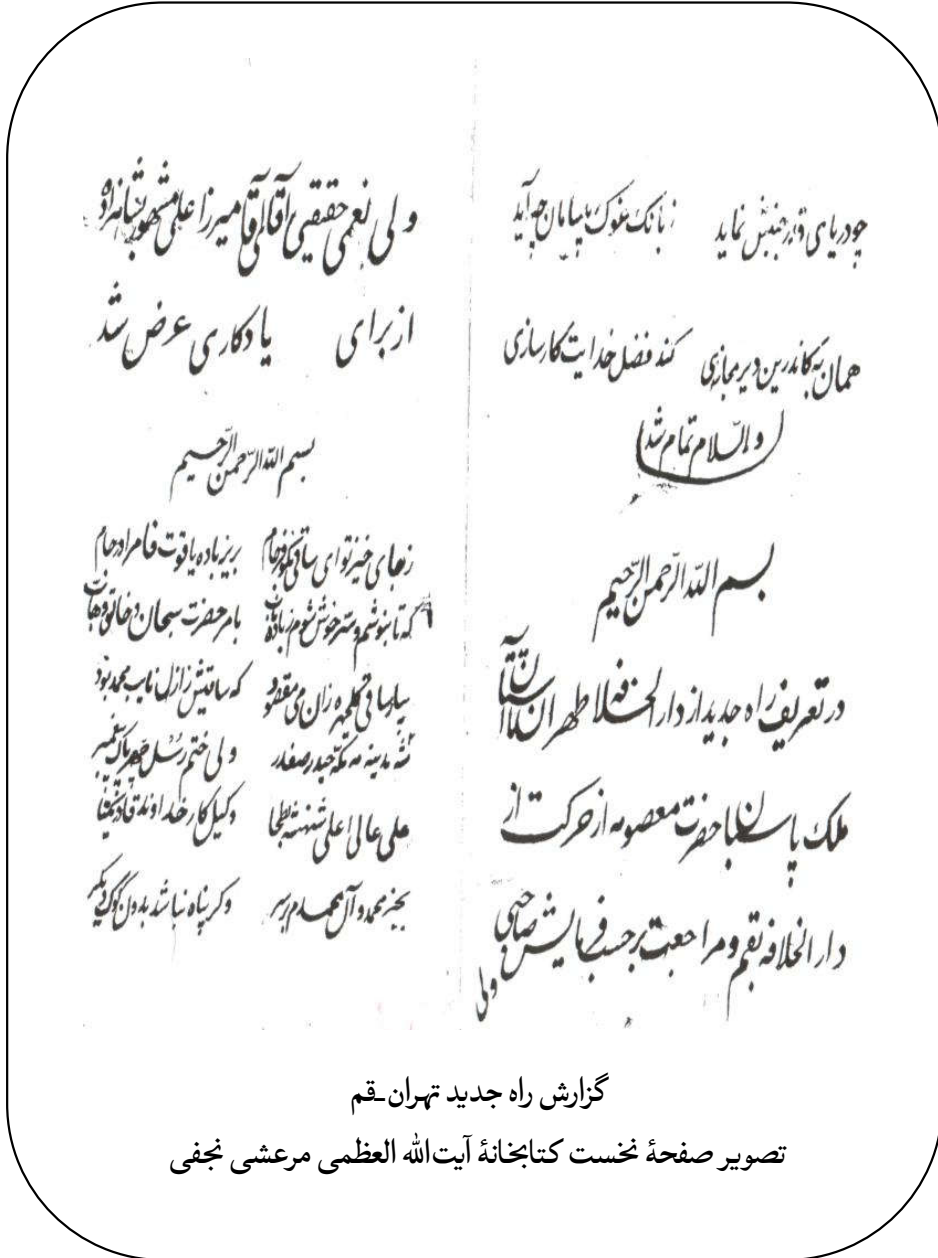 چو دریای قدر جنبش نماید ز بانک غوک بیسامان چه آید
همان به کاندرین دیر مجازی کند فضل خدایت کارسازی
والسلام تمام شد
بسم الله الرحمن الرحیم
در تعریف راه جدید از دارالخلافه طهران الی آستان
ملک پاسبان با حضرت معصومه از حرکت از
دارالخلافه بقم و مراجعت برحسب فرمایش صاحبی
ولی
ولی نعمی حقیقی آقائی آقا میرزا علی مشهور بشاهزاده
از برای یادکاری عرض شد
بسم الله الرحمن الرحیم
ز جای خیز تو ای ساقی نکو فرجام بریز باده یاقوت فام را در جام
که تا بنوشم و سرخوش شوم ز باده بامر حضرت سبحان و خالق
بیا ساقی زان می مقصود که ساقیش ز ازل نایب محمد بود
شه مدینه مه مکه حیدر صفدر ولی ختم رسل پیغمبر
علی عالی اعلی شهنشه بطحا وکیل کار خداوند قادر یکتا
بجز محمد و آل محمدم رهبر وکر پناه نباشد بدون دیکر
گزارش راه جدید تهران-قم
تصویر صفحۀ نخست کتابخانۀ آیت‌الله العظمی مرعشی نجفی